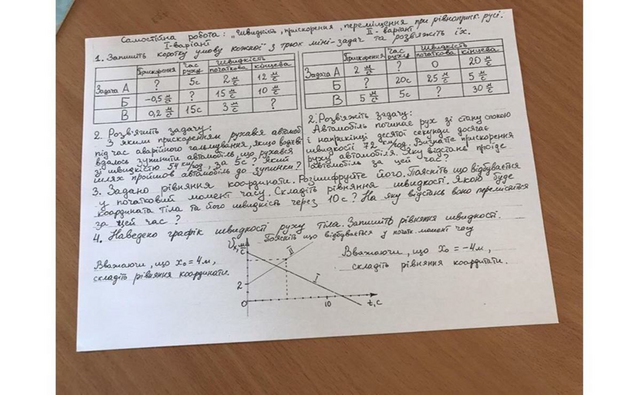 Самостійна робота: „Швидкість, прискорення, переміщення при рівноприск. русі.
I-варіант
II - варіант
1. Запишіть коротку умову кожної з трьох міні-задач та розв'яжіть їх.
Прискорення Час руху Швидкість початкова кінцева
Задача А ? 5с 2 м/с 12 м/с
Б -0,5 м/с² ? 15 м/с 10 м/с
В 0,2 м/с² 15с 3 м/с ?
Прискорення Час руху Швидкість початкова кінцева
Задача А 2 м/с² ? 0 20 м/с
Б ? 20с 25 м/с 5 м/с
В 5с ? 30 м/с
2. Розв'яжіть задачу:
З яким прискоренням рухався автомобіль
під час аварійного гальмування, якщо водієві
вдалось зупинити автомобіль, що рухався
зі швидкістю 54 км/год, за 5с? Який
шлях пройшов автомобіль до зупинки?
2. Розв'яжіть задачу:
Автомобіль починає рух зі стану спокою
і наприкінці десятої секунди досягає
швидкості 72 км/год. Визначте прискорення
руху автомобіля. Яку відстань проїде
автомобіль за цей час?
3. Задано рівняння координати. Розшифруйте його. Поясніть що відбувається
у початковий момент часу. Складіть рівняння швидкості. Якою буде
координата тіла та його швидкість через 10с? На яку відстань воно переміститься
за цей час?
4. Наведено графік швидкості руху тіла. Запишіть рівняння швидкості.
Поясніть що відбувається у момент часу
Вважаючи, що x₀ = 4м,
складіть рівняння координати.
Вважаючи, що x₀ = -4м,
складіть рівняння координати.
II
I
2
0
10
t, с